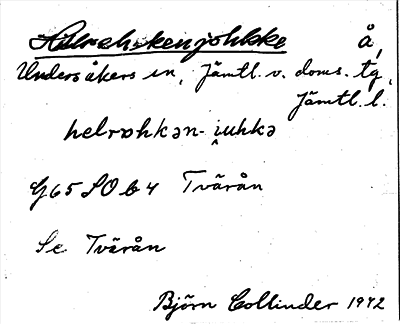 Helreh-kenjohkke å,
Undersåkers sn, Jämtl. v. doms. tg,
Jämtl. l.
helrɒhkən-i̯uhkə
G65 SO b4 Tvärån
Se Tvärån
Björn Collinder 1942